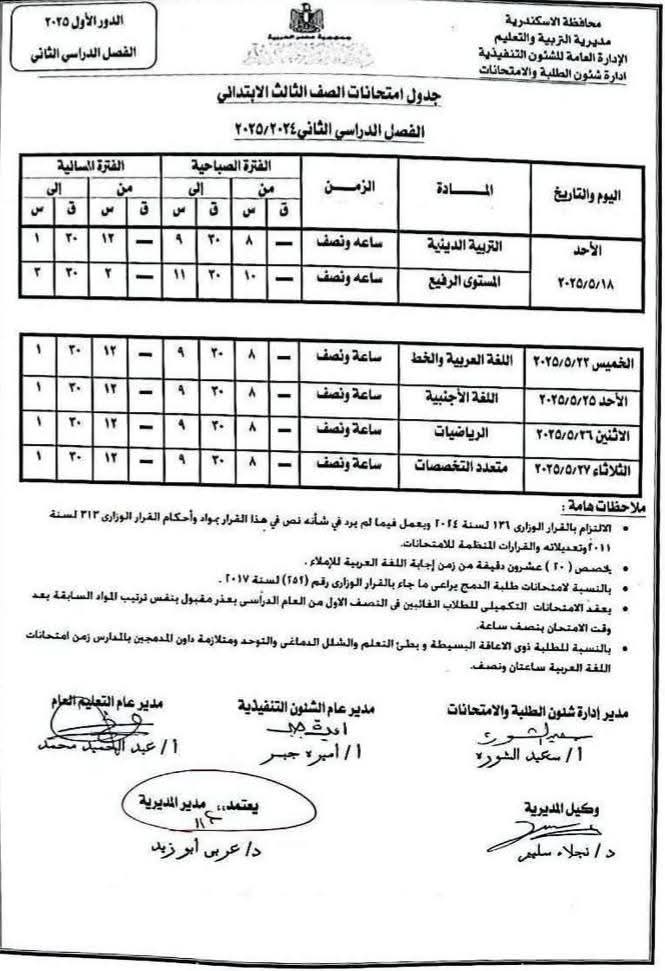 محافظة الاسكندرية
مديرية التربية والتعليم
الإدارة العامة للشئون التنفيذية
ادارة شئون الطلبة والامتحانات
جمهورية مصر العربية
الدور الأول ٢٠٢٥
الفصل الدراسي الثاني
جدول امتحانات الصف الثالث الابتدائي
الفصل الدراسي الثاني ٢٠٢٥/٢٠٢٤
اليوم والتاريخ المـــادة الزمـــن الفترة الصباحية الفترة المسائية
من إلى من إلى
ق س ق س ق س ق س
الأحد التربية الدينية ساعه ونصف — ٨ ٣٠ ٩ — ١٢ ٣٠ ١
٢٠٢٥/٥/١٨ المستوى الرفيع ساعه ونصف — ١٠ ٣٠ ١١ — ٢ ٣٠ ٣
الخميس ٢٠٢٥/٥/٢٢ اللغة العربية والخط ساعة ونصف — ٨ ٣٠ ٩ — ١٢ ٣٠ ١
الأحد ٢٠٢٥/٥/٢٥ اللغة الأجنبية ساعة ونصف — ٨ ٣٠ ٩ — ١٢ ٣٠ ١
الاثنين ٢٠٢٥/٥/٢٦ الرياضيات ساعة ونصف — ٨ ٣٠ ٩ — ١٢ ٣٠ ١
الثلاثاء ٢٠٢٥/٥/٢٧ متعدد التخصصات ساعة ونصف — ٨ ٣٠ ٩ — ١٢ ٣٠ ١
ملاحظات هامة :
• الالتزام بالقرار الوزارى ١٣٦ لسنة ٢٠٢٤ ويعمل فيما لم يرد في شأنه نص في هذا القرار بمواد وأحكام القرار الوزارى ٣١٣ لسنة
٢٠١١ وتعديلاته والقرارات المنظمة للامتحانات.
• يخصص ( ٢٠ ) عشرون دقيقة من زمن إجابة اللغة العربية للإملاء .
• بالنسبة لامتحانات طلبة الدمج يراعى ما جاء بالقرار الوزارى رقم (٢٥٢) لسنة ٢٠١٧ .
• يعقد الامتحانات التكميلى للطلاب الغائبين فى النصف الاول من العام الدراسى بعذر مقبول بنفس ترتيب المواد السابقة بعد
وقت الامتحان بنصف ساعة.
• بالنسبة للطلبة ذوى الاعاقة البسيطة و بطئ التعلم والشلل الدماغى والتوحد ومتلازمة داون المدمجين بالمدارس زمن امتحانات
اللغة العربية ساعتان ونصف.
مدير إدارة شئون الطلبة والامتحانات مدير عام الشئون التنفيذية مدير عام التعليم العام
أ/ سعيد الشوره أ/ أميرة جبر أ/ عبد الحميد محمد
وكيل المديرية يعتمد،، مدير المديرية
د/ نجلاء سليم د/ عربى أبو زيد